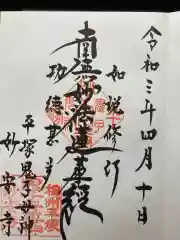 令和三年四月十日
如説修行
南無妙法蓮華経
功徳甚多
平塚鬼子母神
妙安寺